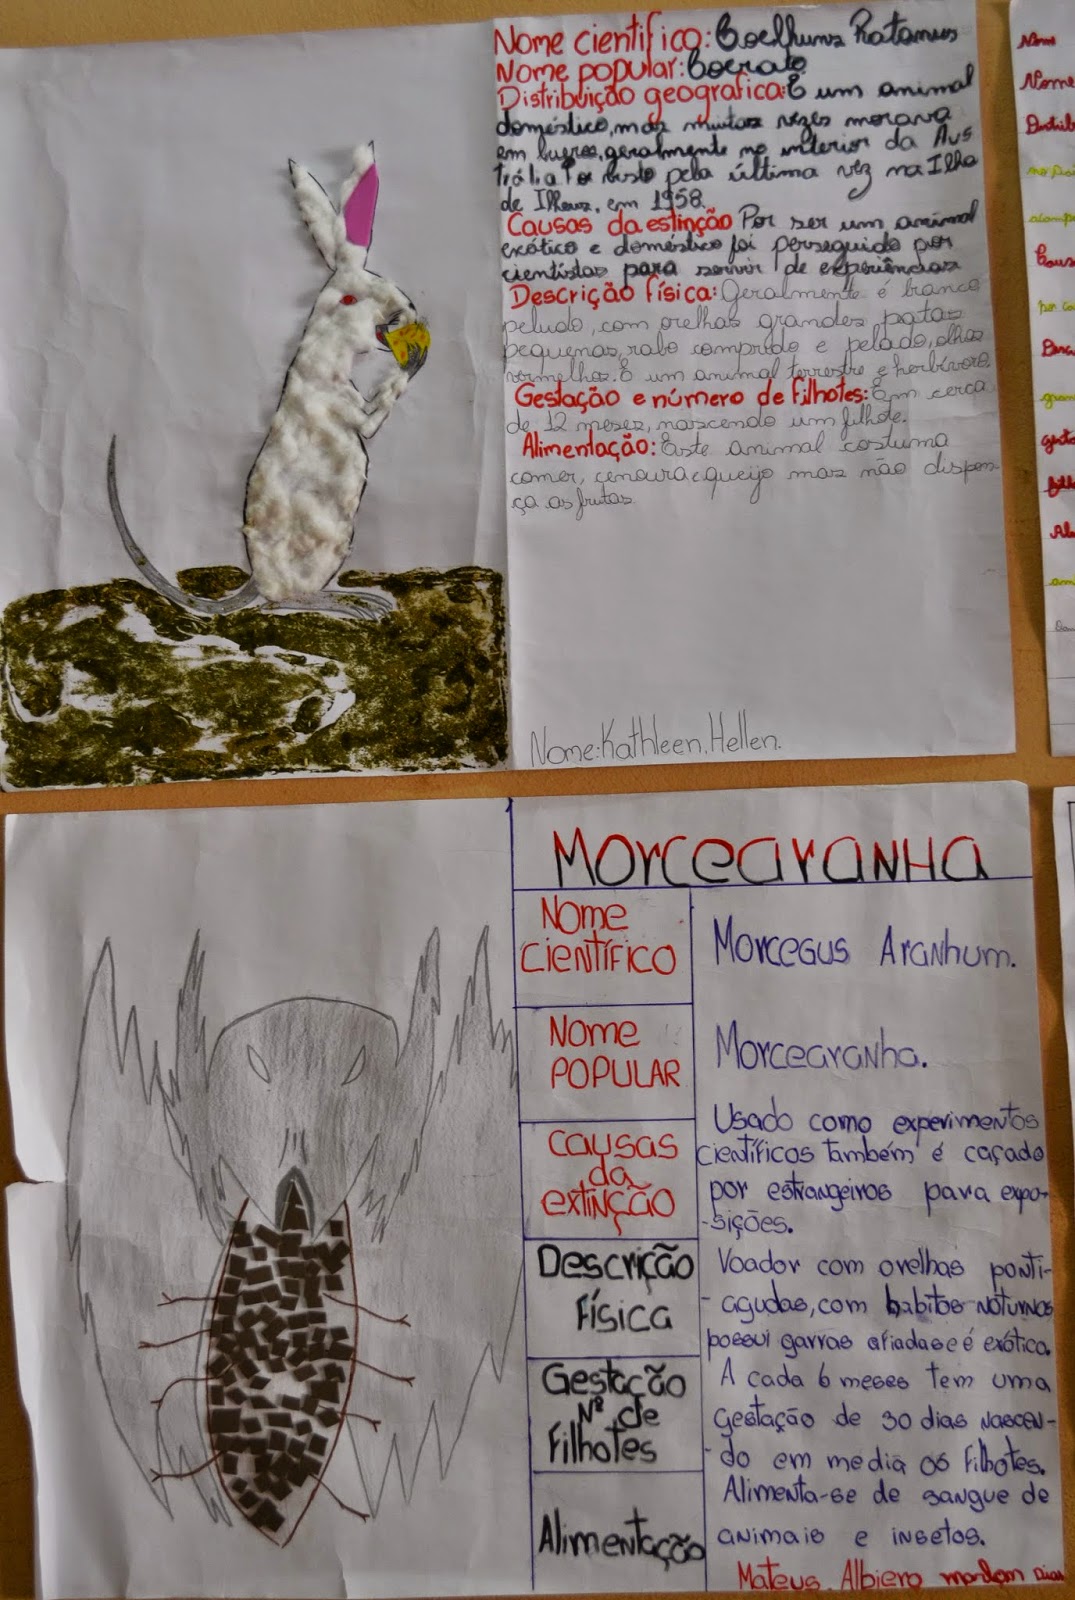 Nome científico: Coelhuns Ratanus
Nome popular: Coerato
Distribuição geografica: É um animal
doméstico, mas muitas vezes morava
em, geralmente no interior da Aus
trália Foi visto pela última vez na Ilha
de Ilheus, em 1958.
Causas da estinção Por ser um animal
exótico e doméstico foi perseguido por
cientistas para servir de experiências
Descrição física: Geralmente é branco
peludo, com orelhas grandes patas
pequenas, rabo comprido e pelado, olhos
vermelhos. É um animal terrestre e herbívoro.
Gestação e número de filhotes: Em cerca
de 12 meses, nascendo um filhote.
Alimentação: Este animal costuma
comer, cenoura e queijo mas não dispen
ça as frutas
Nome: Kathleen, Hellen.
Nom
Nome
Distrib
Caus
gran
MORCEARANHA
NOME
CIENTÍFICO
MORCEGUS ARANHUM.
NOME
POPULAR
MORCEARANHA.
CAUSAS
da
EXTINÇÃO
Usado como experimentos
científicos também é caçado
por estrangeiros para expo-
-sições.
DESCRIÇÃO
FÍSICA
Voador com orelhas ponti-
-agudas, com habitos noturnos
possui garras afiadas e é exótica.
GESTAÇÃO
Nº de
Filhotes
A cada 6 meses tem uma
gestação de 30 dias nascen-
-do em media 06 filhotes.
ALIMENTAÇÃO
Alimenta-se de sangue de
animais e insetos.
Mateus, Albiero Dias